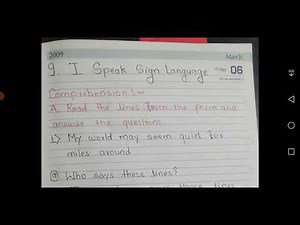 2009
March
06
9. I Speak Sign Language
Comprehension :-
A. Read the lines from the poem and
answer the questions.
1> My world may seem quiet for
miles around
@ Who says these lines?
these lines